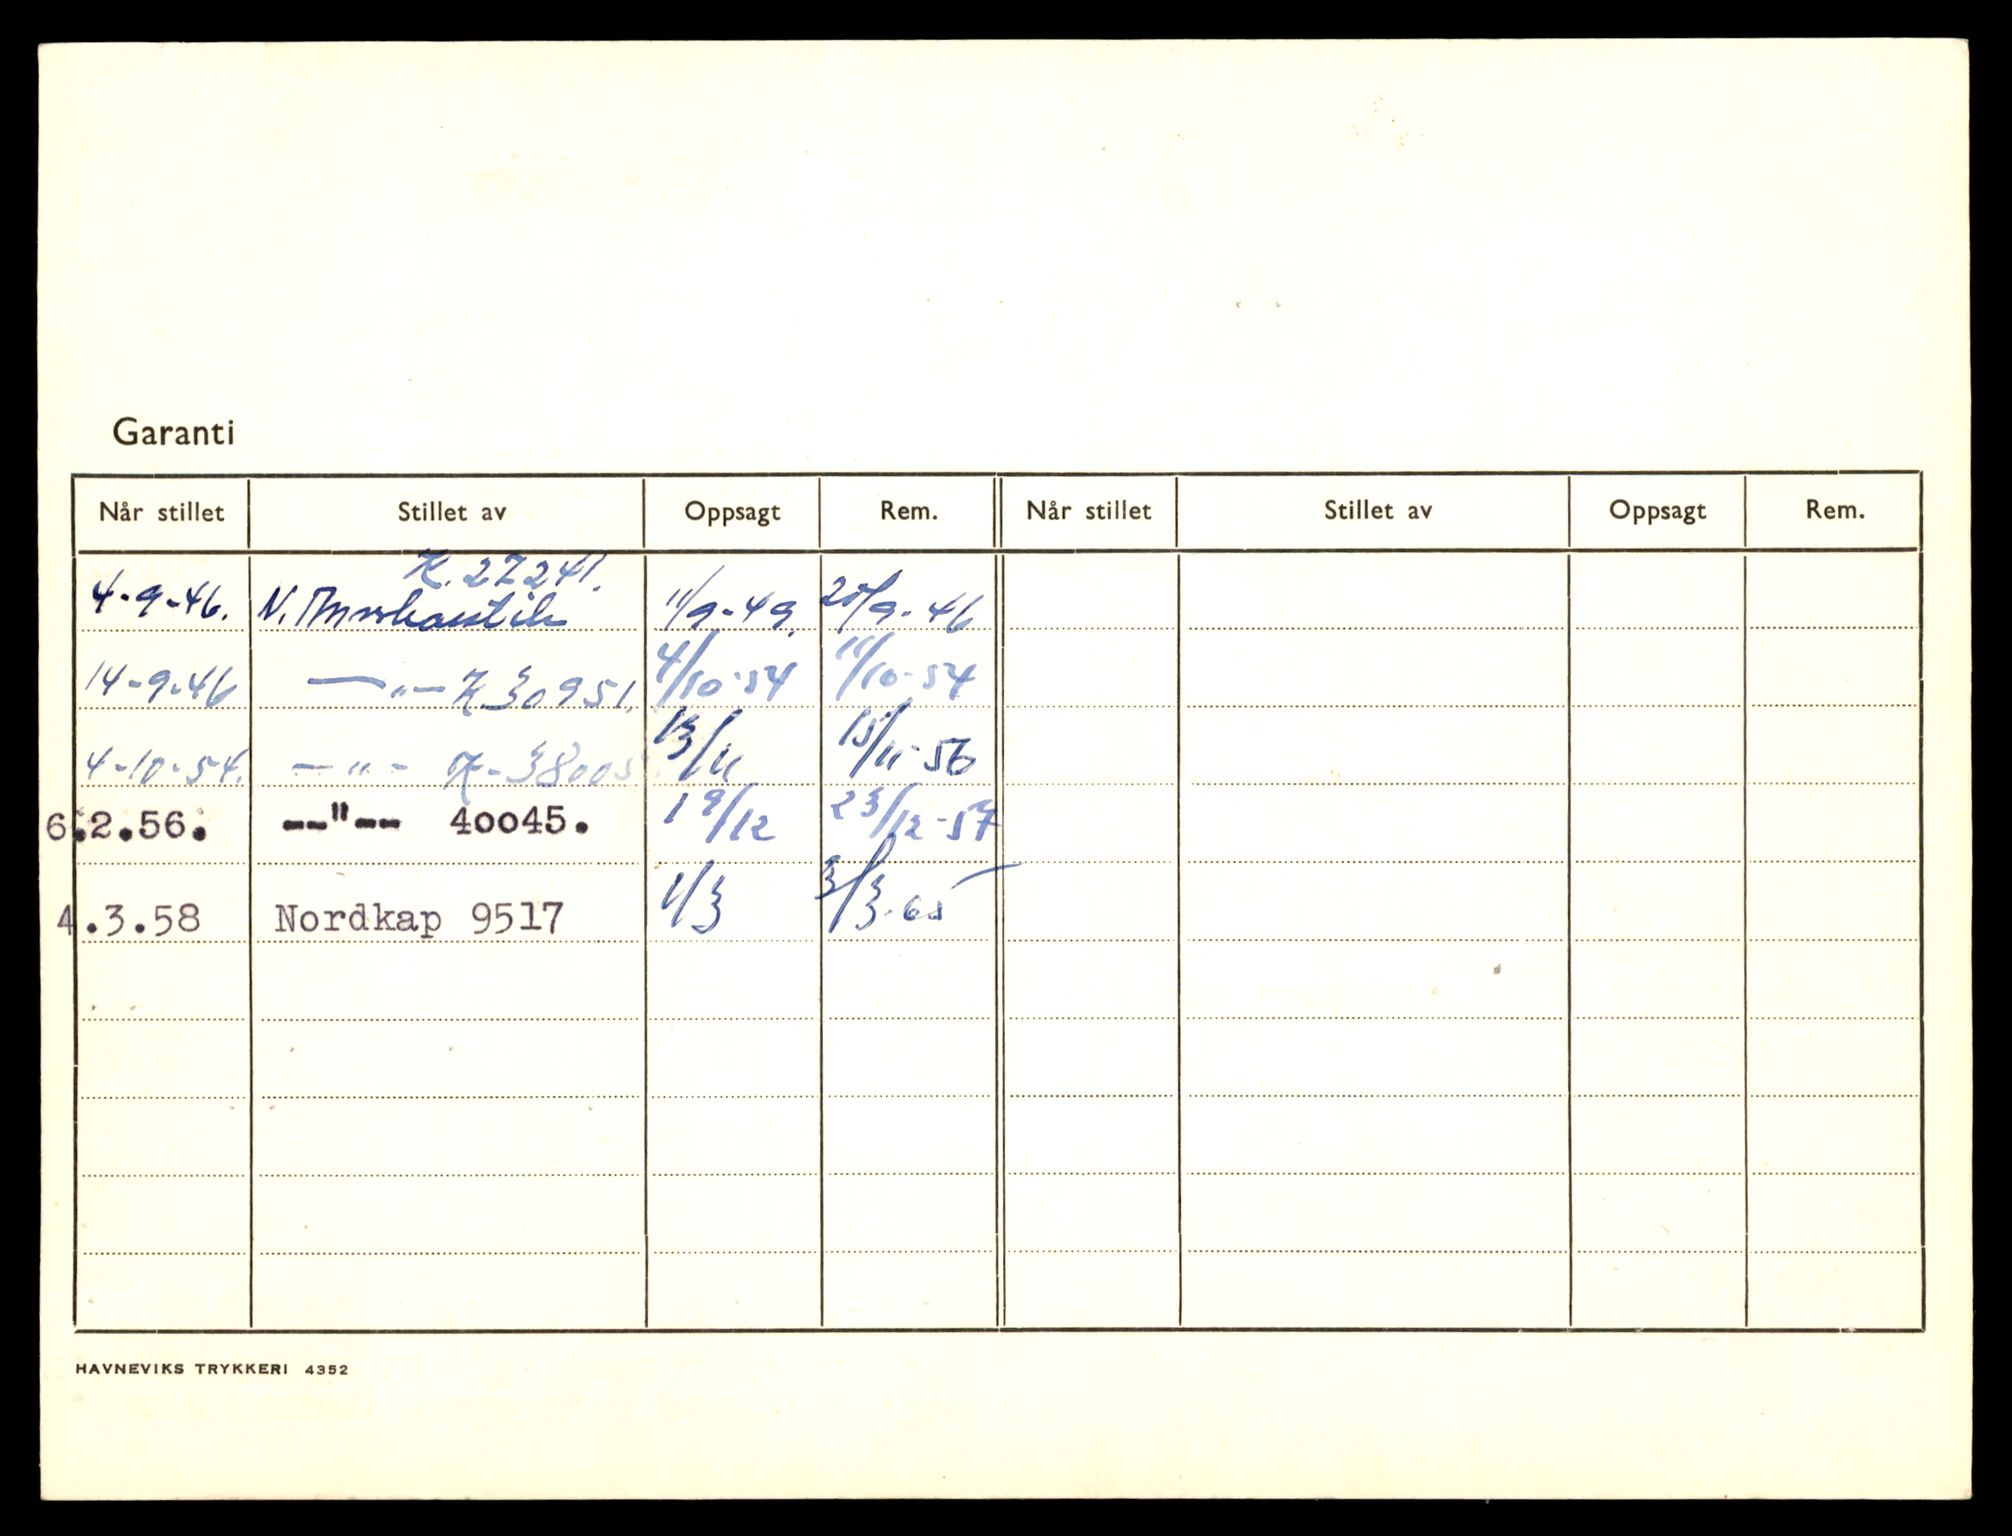 Garanti
Når stillet Stillet av Oppsagt Rem. Når stillet Stillet av Oppsagt Rem.
K. 27241.
4-9-46. N. 11/9-49. 20/9-46
14-9-46 —"— K 30951. 4/10-54 11/10-54
4-10-54. —"— K-38005 13/11 15/11-56
6.2.56. --"-- 40045. 19/12 23/12-57
4.3.58 Nordkap 9517 1/3 3/3-65
HAVNEVIKS TRYKKERI 4352